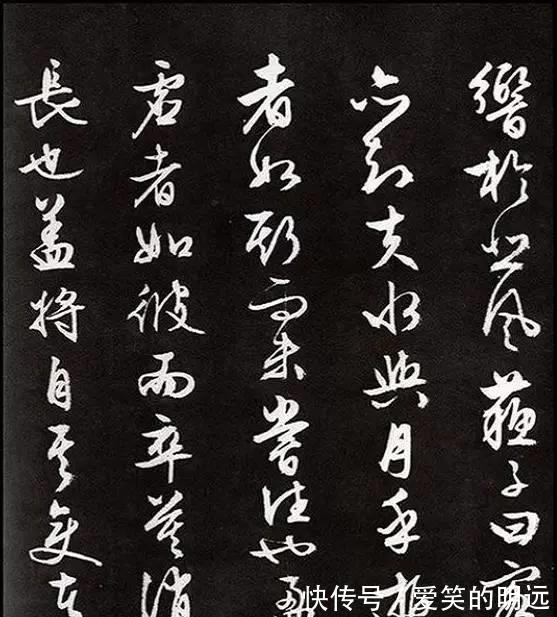 響於悲風蘇子曰客
亦知夫水與月乎逝
者如斯而未嘗往也盈
虛者如彼而卒莫消
長也盖將自其變者
快传号/爱笑的明远